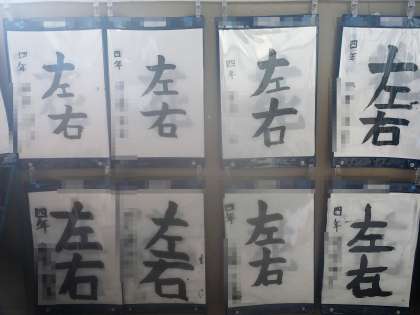 左右
四年
左右
四年
左右
四年
左右
四年
左右
四年
左右
左右
四年
左右
四年
左右
四年